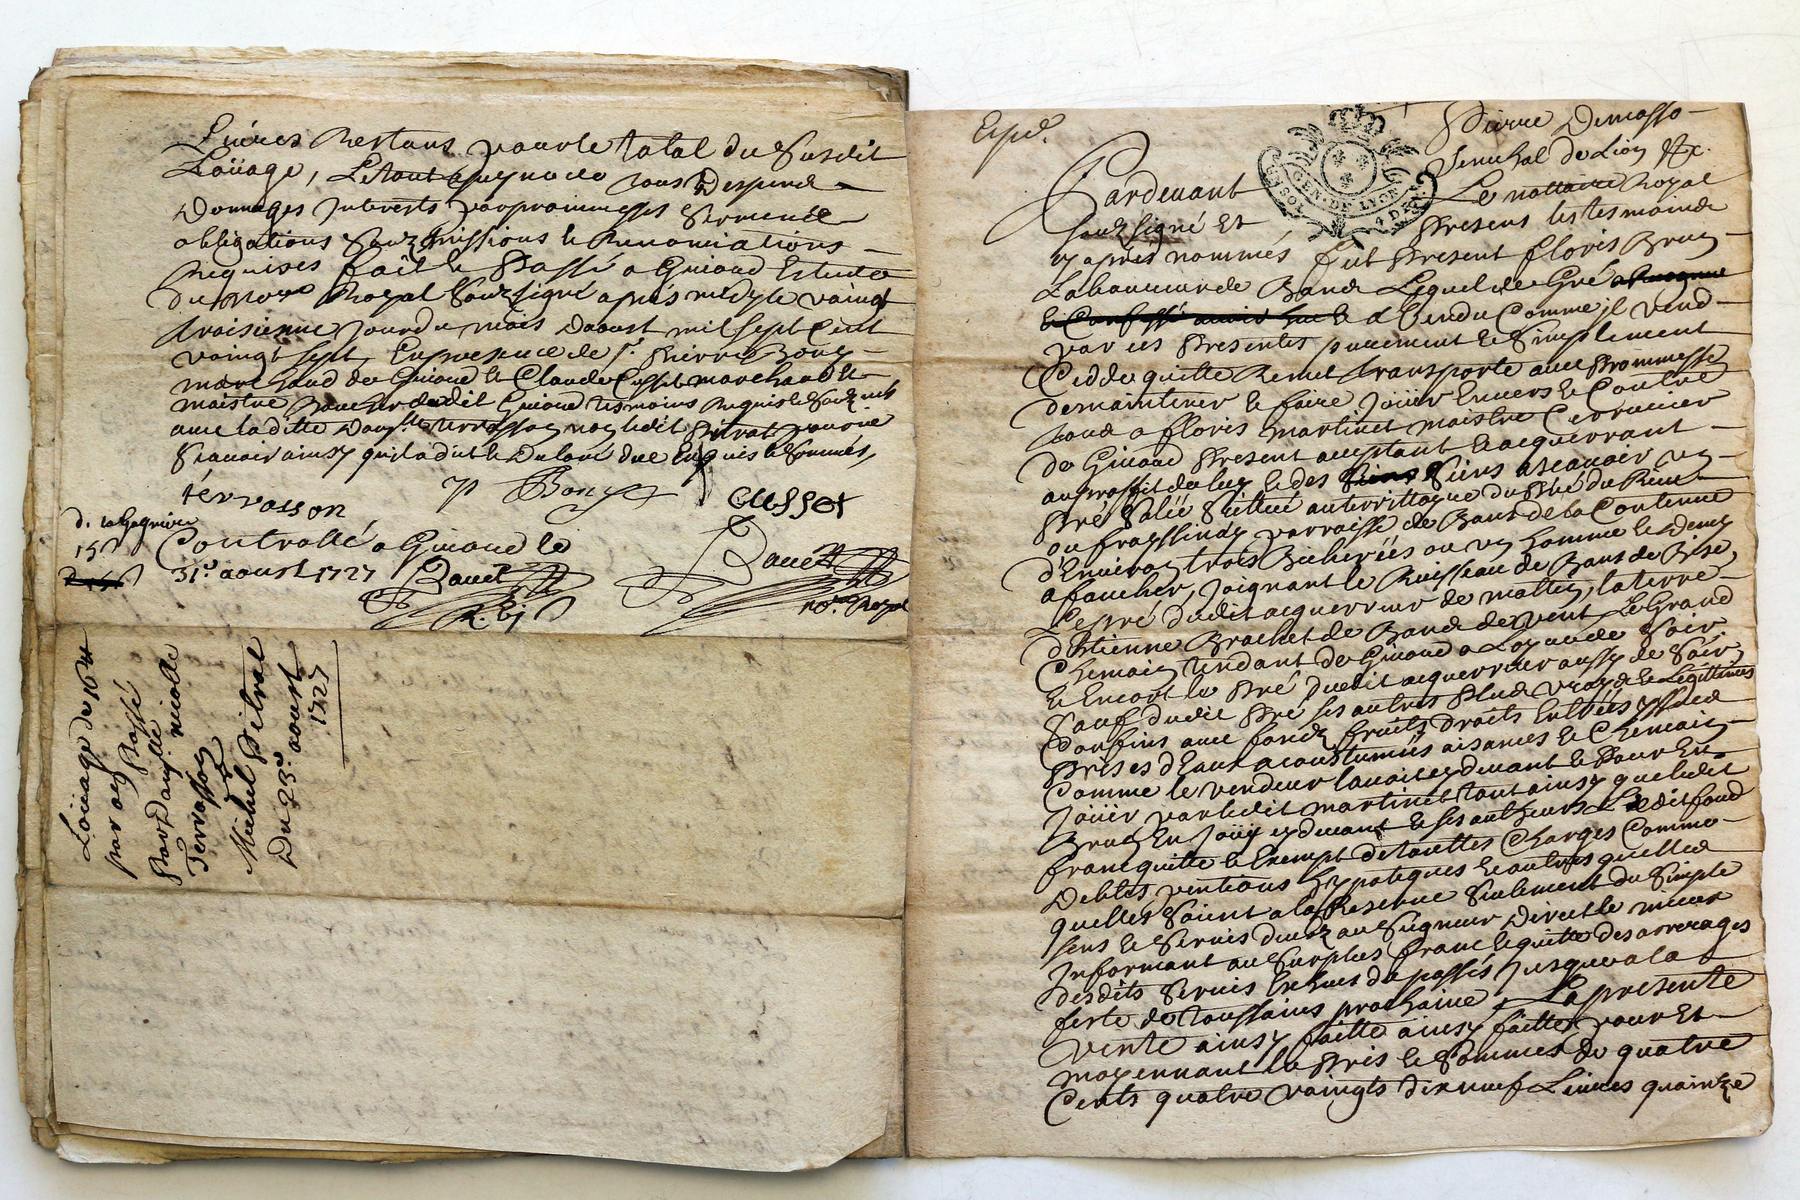 Livres Restans pour le total du Susdit
Loüage, Le tout a peyne de tous Despend
Domages Interests par promesses Serment
obligations Soubzmissions & Renonciations
Requises fait & Passé a Givord Estude
du No.re Royal Soubsigné après midy le vaingt
troisienne jour du mois Daoust mil Sept Cent
vaingt Sept, En presence de s.r Pierre Bony
marchand de Givord & Claude Cusset marchand &
maistre Boucher dudit Givord tesmoins Requis & Soubz.nés
avec laditte Dam.lle terrasson non ledit Pitrat pour ne
Scavoir ainsy quil a dit & Declaré de ce Enquis & Sommés,
terrasson
P Bony
Cusset
15 s
Controllé a Givord le
31.e aoust 1727
Bauet
Bauet
R. 6 s
no.re Royal
Loüage de 16 tt
par an Passé
Par Dam.lle nicolle
Terrasson
a
Michel Pitrat
Du 23.e aoust
1727
Expe.
Pierre Demasso
Senechal de Lion &c.
GEN. DE LYON
Pardevant
Le nottaire Royal
Soubzsigné Et
Presens les tesmoins
cy apres nommés fut Present floris Brun
Laboureur de Lequel de Gré
a Vendu Comme il vend
par ces Presentes purement & Simplement
Cedde quitte Remet transporte avec Promesse
de maintenir & faire Joüir Envers & Contre
tous a floris martinet maistre
de Givord Present acceptant & acquerrant
au proffit de luy & des Siens ascavoir un
Pré Scitué au territtoire du Pré du
ou frayssindy parroisse de de la Contenue
d'Environ trois Bicherées ou un homme & Demy
a faucher, Joignant le Ruisseau de de Bise,
Le pré dudit acquerreur de mattin, la terre
d'Etienne Brachet de de vent Le Grand
Chemain tendant de Givord a de Soir
& Encort le Pré dudit acquerreur aussy de Soir,
Sauf dudit Pré ses autres Plus vrays & Legittimes
Confins avec fondz fruits droits Entrées yssues
Prises d'Eaux acoustumées aisances & Chemain
Comme le vendeur lavoit cy devant & Pour En
Joüir par ledit martinet tout ainsy que ledit
Brun En Joüy cy devant & ses autheurs Ledit fond
franc quitte & Exempt de touttes Charges Comme
Debtes pentions hypoteques & autres quelles
quelles Soient a la Reserve Seulement du Simple
sens & Servis deubz au Seigneur Direct le mieux
Informant au Surplus franc & quitte des arrerages
desdits Servis Escheus du passés Jusques a la
feste de toussains prochaine, La presente
vente ainsy faitte ainsy faitte pour Et
moyennant le Pris & Sommes de quatre
Cents quatre vaingts dixneuf Livres quainze